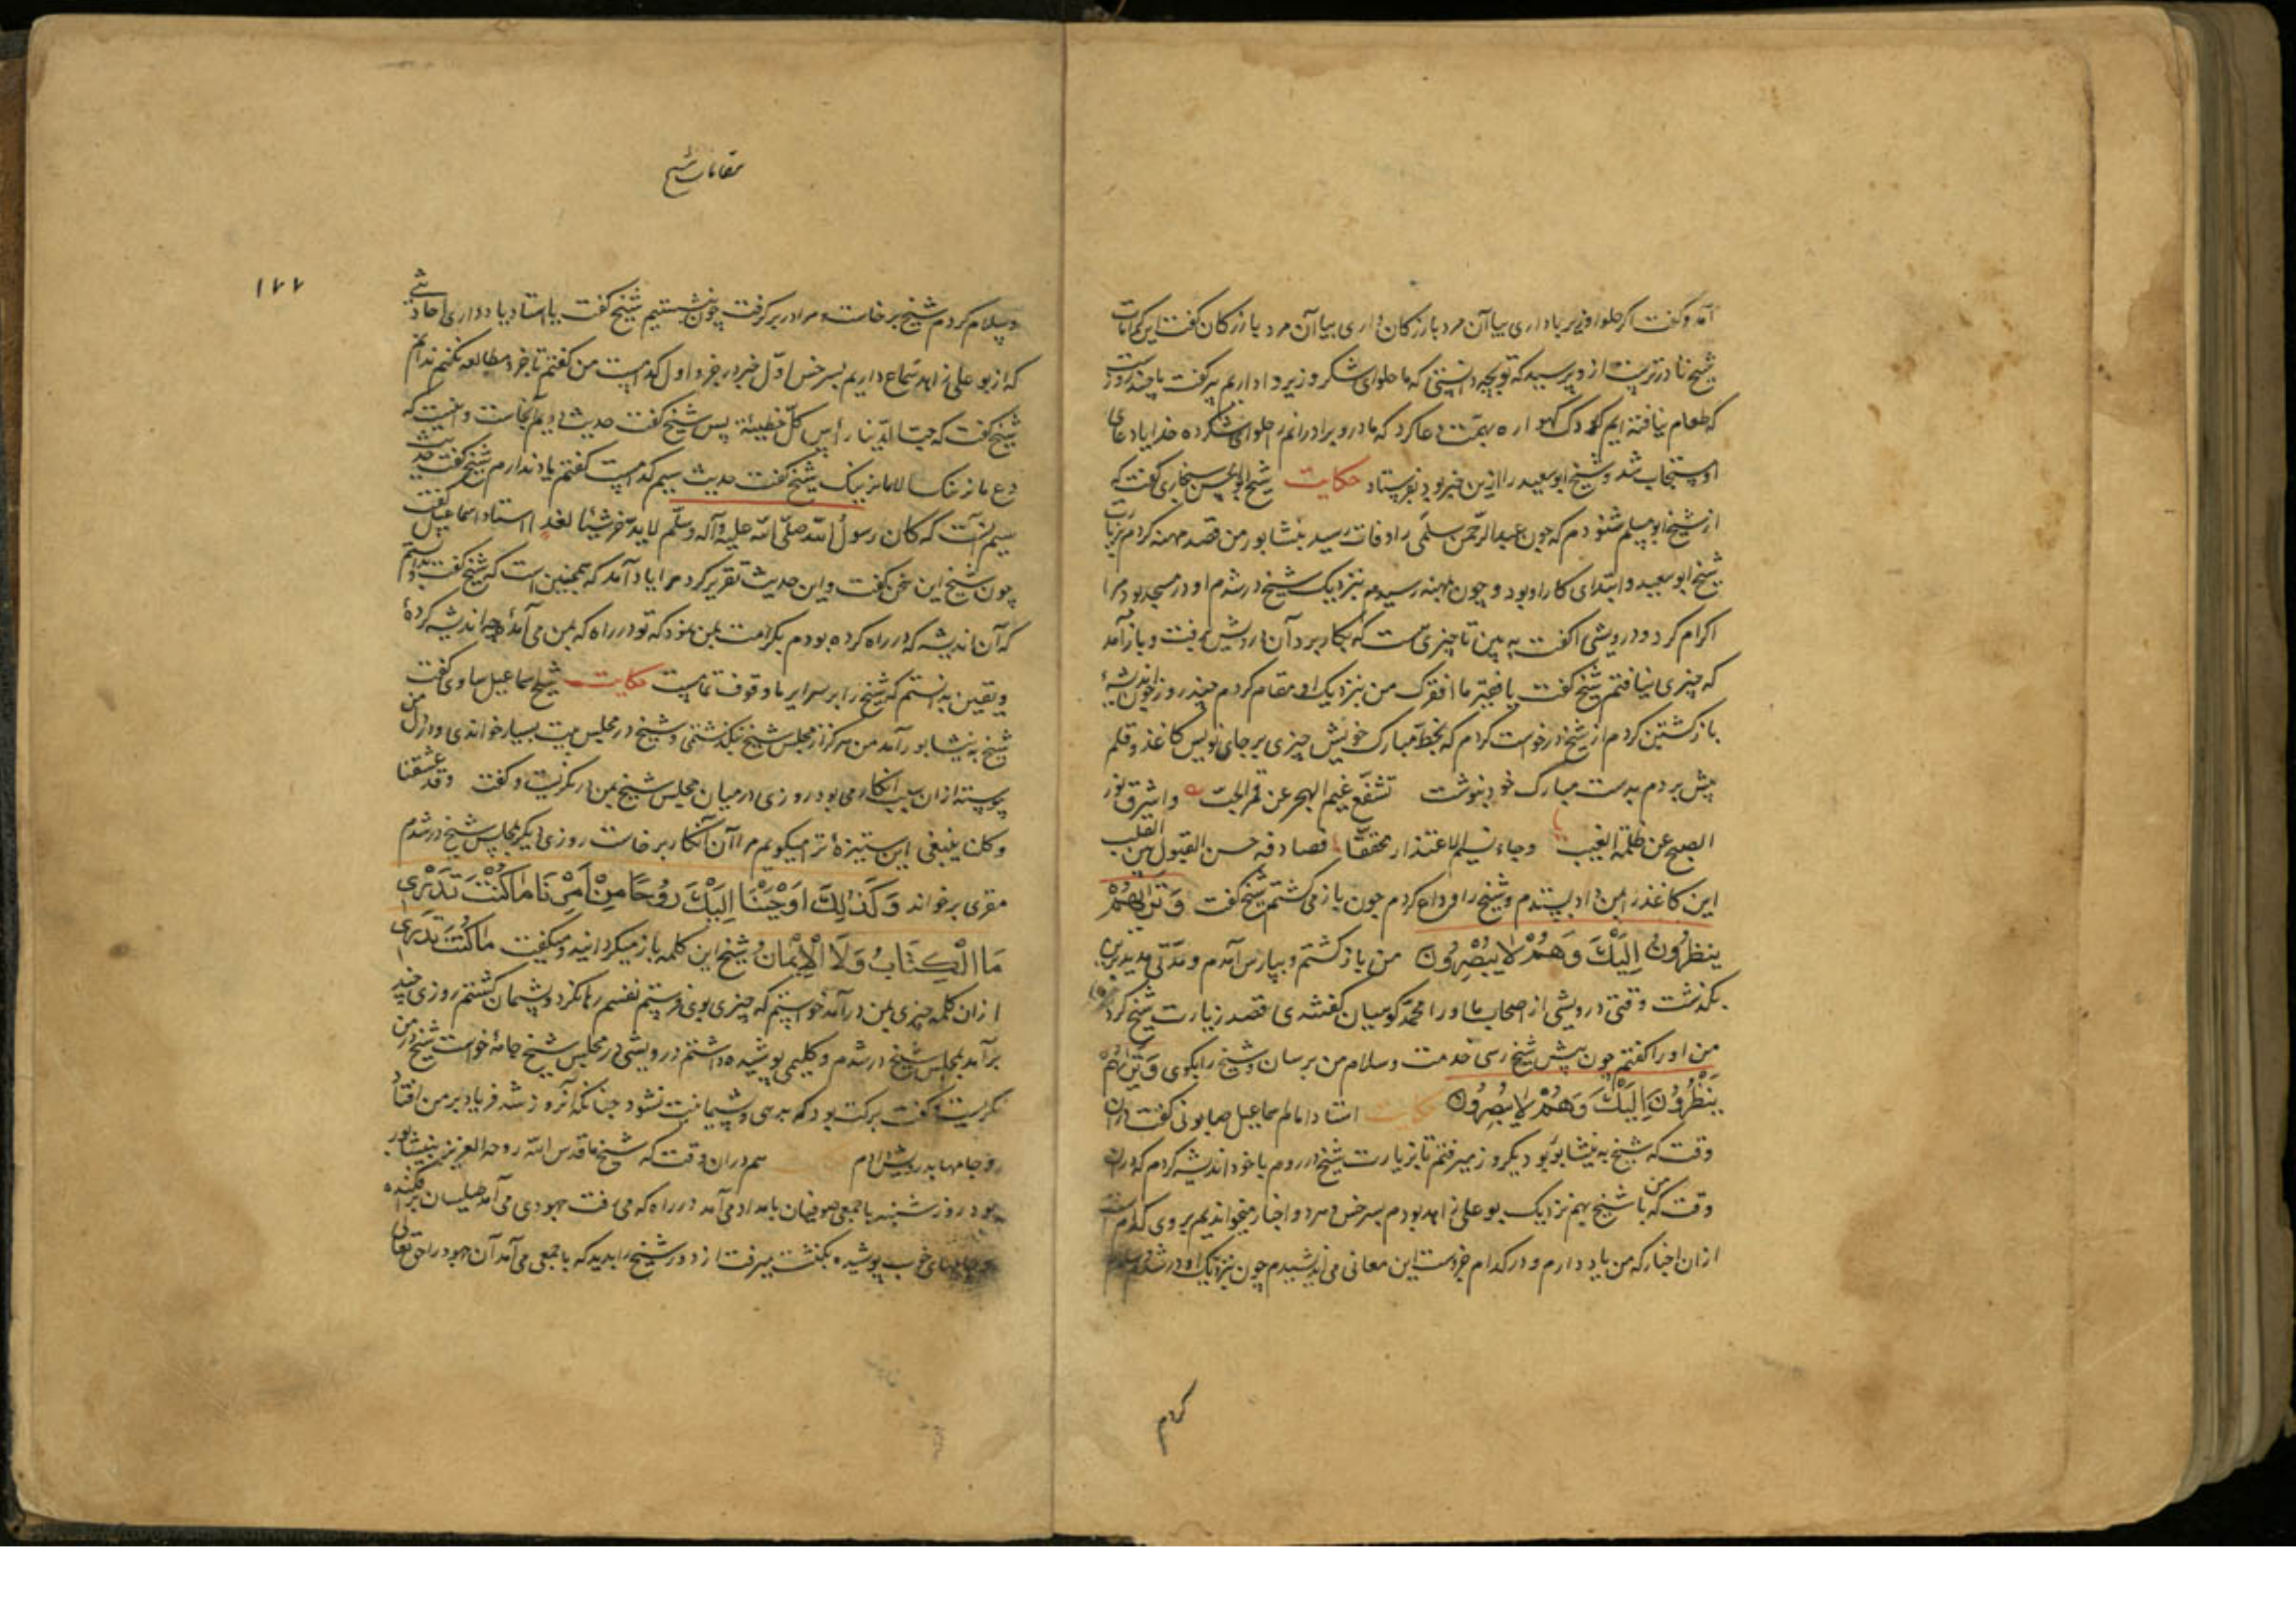 آمد و گفت اگر حلوا فی داری بیا آن مرد بازرکان داری بیا آن مرد بازرکان گفت این کرامات
شیخ نادرترست از وی پرسید که تو بچه دانستی که ما حلوای شکر و زیرو اداریم پیر گفت
که طعام نیافته ایم کودک گهواره بهمت دعا کرد که مادر و برادرانم را حلوای شکر ده خدایا دعای
او مستجاب شد و شیخ ابو سعید را ازین خبر بود بفرستاد حکایت شیخ ابو الحسن سنجاری گفت که
از شیخ ابو مسلم شنودم که چون عبد الرحمن سلمی را وفات رسید بنشابور من قصد مهنه کردم بزیارت
شیخ ابو سعید و ابتدای کار او بود و چون بمهنه رسیدم بنزدیک شیخ درشدم او در مسجد بود مرا
اکرام کرد و درویشی را گفت به بین تا چیزی هست که بکار برد آن درویش برفت و باز آمد
که چیزی نیافتم شیخ گفت یا فخر ما افقرک من بنزدیک او مقام کردم چند روز چون اندیشهٔ
باز گشتن کردم از شیخ درخواست کردم که بخط مبارک خویش چیزی بر جای نویس کاغذ و قلم
پیش بردم بدست مبارک خود بنوشت تقشع غیم الهجر عن قمر الحب واشرق نور
الصبح عن ظلمة الغیب وجاء نسیم الاعتذار محققا فصادفه حسن القبول من القلب
این کاغذ را بمن داد بستدم و شیخ را وداع کردم چون باز می گشتم شیخ گفت وَتَرَاهُمْ
یَنظُرُونَ اِلَیْكَ وَهُمْ لَا یُبْصِرُونَ من باز گشتم و بپارس آمدم و مدتی مدید برین
بگذشت وقتی درویشی از اصحاب ما او را محمد کومیان گفتندی قصد زیارت شیخ کرد
من او را گفتم چون پیش شیخ رسی خدمت و سلام من برسان و شیخ را بگوی وَتَرَاهُمْ
یَنْظُرُونَ اِلَیْكَ وَهُمْ لَا یُبْصِرُونَ حکایت استاد امام اسماعیل صابونی گفت در آن
وقت که شیخ به نیشابور بود دیگر روز میرفتم تا بزیارت شیخ درروم با خود اندیشه کردم که در آن
وقت که من با شیخ بهم نزدیک بو علی زاهد بودم بسرخس و هر دو اخبار میخواندیم بروی کدام
از آن اخبار که من یاد دارم و در کدام جزوست این معانی می اندیشیدم چون بنزدیک او درشدم
کردم
مقامات شیخ
۱۷۷
و سلام کردم شیخ برخاست و مرا در بر گرفت چون بنشستیم شیخ گفت یا استاد یاد داری احادیثی
که از بو علی زاهد سماع داریم بسرخس اول خبر در جزو اول کدامست من گفتم تا جزو مطالعه نکنم ندانم
شیخ گفت که حب الدنیا رأس کل خطیئة پس شیخ گفت حدیث دویم آنجاست و اینست که
دع ما یریبک الی ما لا یریبک شیخ گفت حدیث سیم کدامست گفتم یاد ندارم شیخ گفت حدیث
سیم آنست که کان رسول الله صلی الله علیه وآله وسلم لا یدخر شیئا لغد استاد اسماعیل گفت
چون شیخ این سخن گفت و این حدیث تقریر کرد مرا یاد آمد که همچنین است که شیخ گفت و بدانستم
که آن اندیشه که در راه کرده بودم بکرامت بمن نمود که تو در راه که بمن می آمدهٔ چه اندیشه کردهٔ
و یقین بدانستم که شیخ را بر سرایر ما وقوف تمامست حکایت شیخ اسماعیل ساوی گفت
شیخ به نیشابور آمد من هرگز از مجلس شیخ نگذشتمی و شیخ در مجلس بیت بسیار خواندی و در دل من
پیوسته از آن سبب انکار می بود روزی در میان مجلس شیخ بمن درنگریست و گفت وقد عشقنا
وکان ینبغی این ستیزهٔ ترا میگویم مرا آن انکار برخاست روزی دیگر بمجلس شیخ درشدم
مقری برخواند وَكَذٰلِكَ اَوْحَیْنَا اِلَیْكَ رُوحًا مِنْ اَمْرِنَا مَا كُنْتَ تَدْرِی
مَا الْكِتَابُ وَلَا الْاِیمَانُ شیخ این کلمه باز میگردانید و میگفت مَا كُنْتَ تَدْرِی
از آن کلمه چیزی بمن درآمد خواستم که چیزی بوی فرستم نفسم رها نکرد و پشیمان گشتم روزی چند
برآمد بمجلس شیخ درشدم و گلیمی پوشیده داشتم درویشی در مجلس شیخ جامهٔ خواست شیخ در من
نگریست و گفت برکت بود که برسی و پشیمانیت نشود چنانکه آنروز شد فریاد بر من افتاد
و جامها بدرویش دادم هم در آن وقت که شیخ ما قدس الله روحه العزیز بنیشابور
بود روز شنبه با جمعی صوفیان بامداد می آمد در راه که می رفت جهودی می آمد طیلسان برافکنده
و جامهای خوب پوشیده بکنشت میرفت از دور شیخ را بدید که با جمعی می آمد آن جهود را حق تعالی